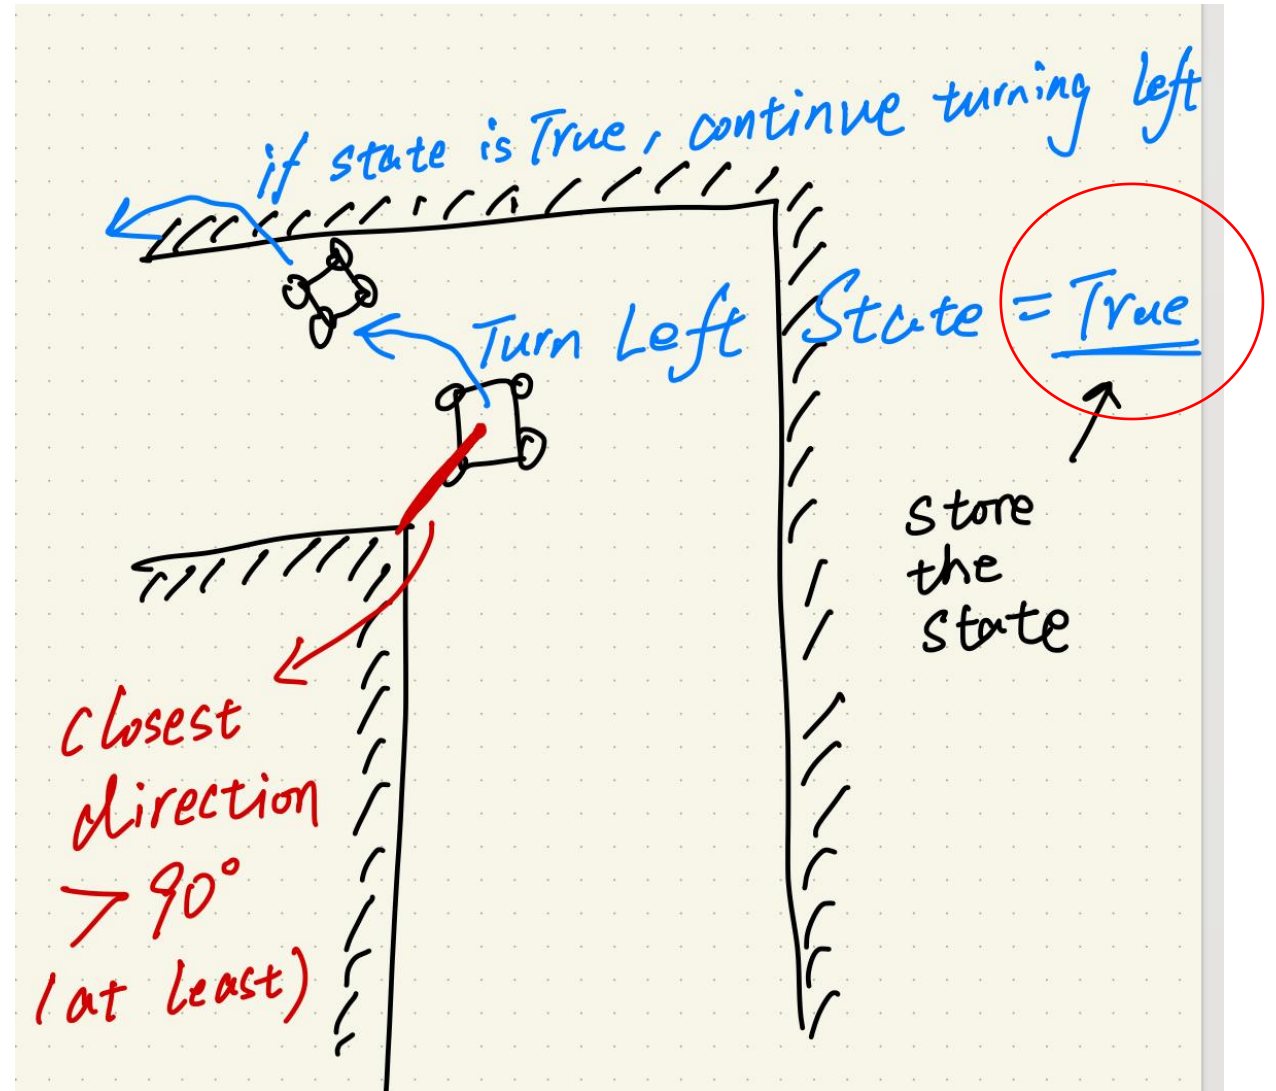 if state is True, continue turning left
Turn Left State = True
store
the
state
Closest
direction
> 90°
(at least)